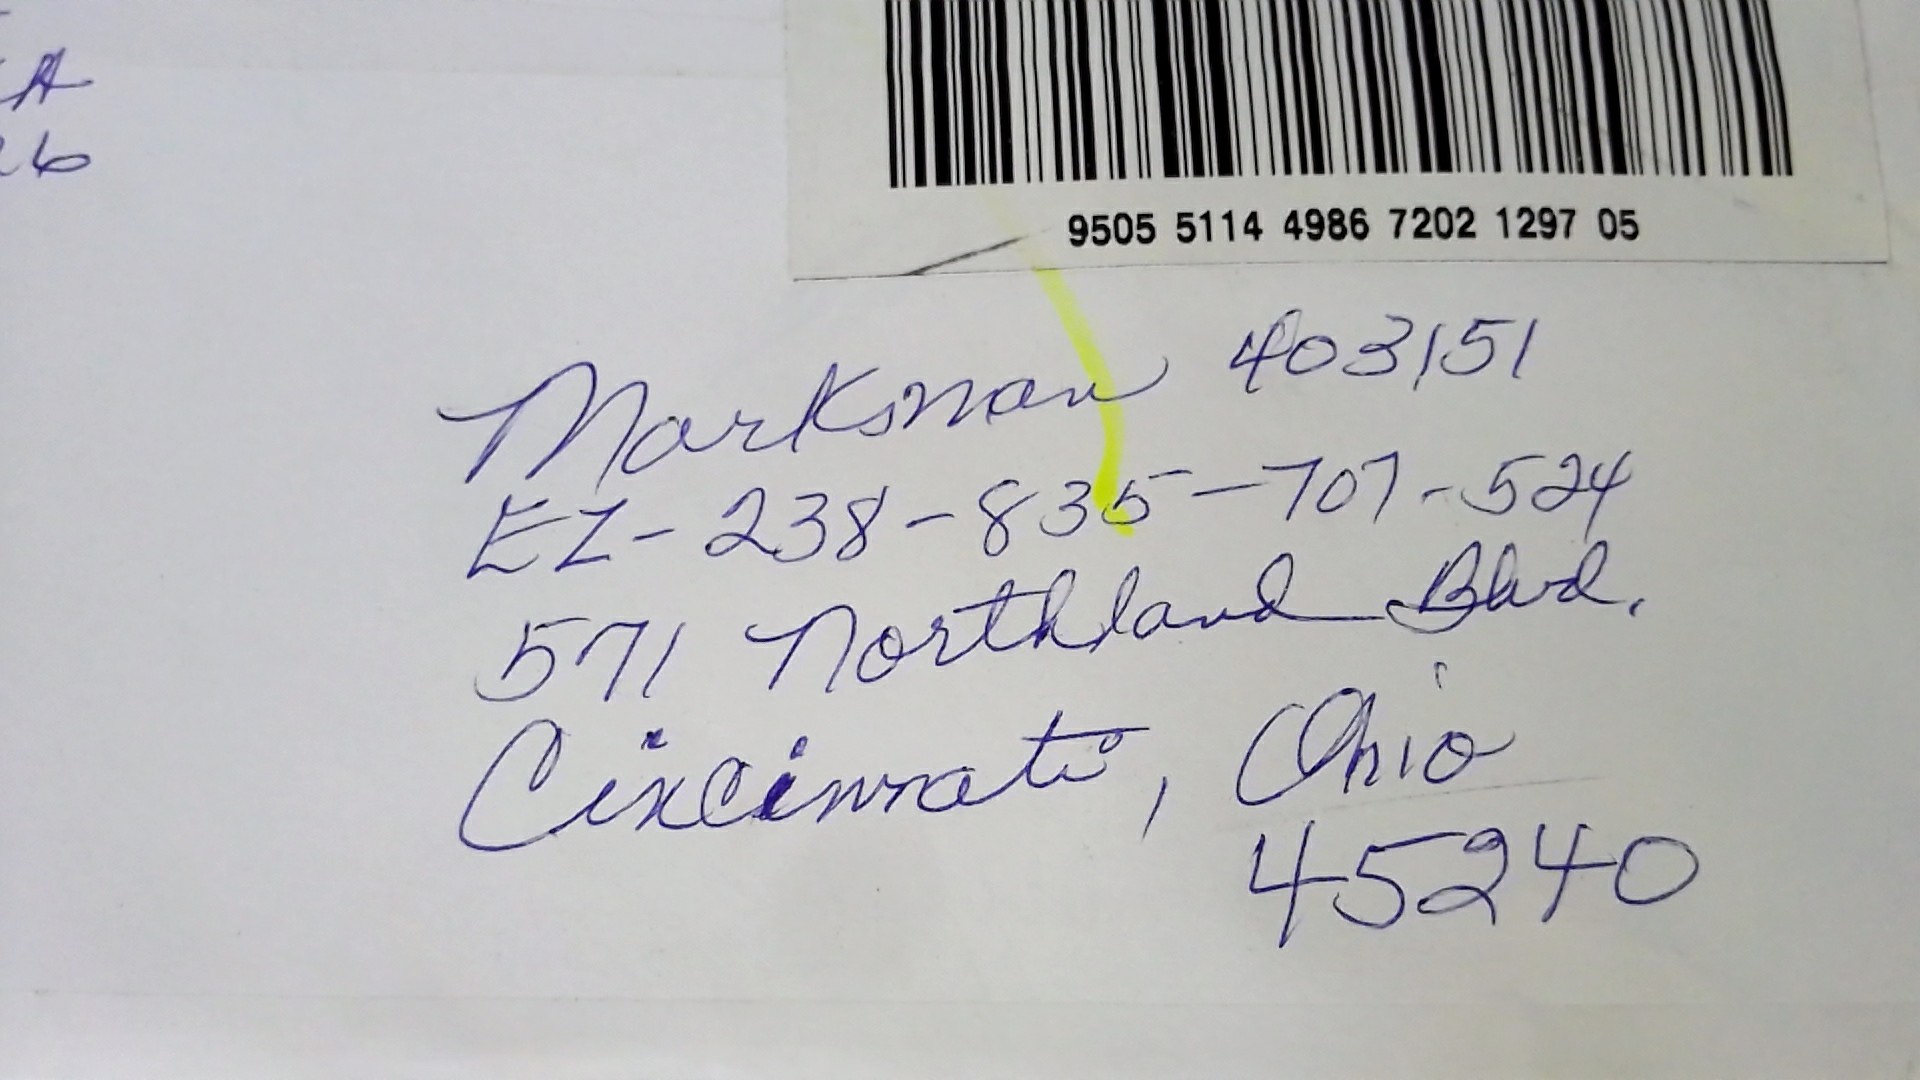 A
26
9505 5114 4986 7202 1297 05
Marksman 403151
EZ-238-835-707-524
571 Northland Blvd.
Cincinnati, Ohio
45240